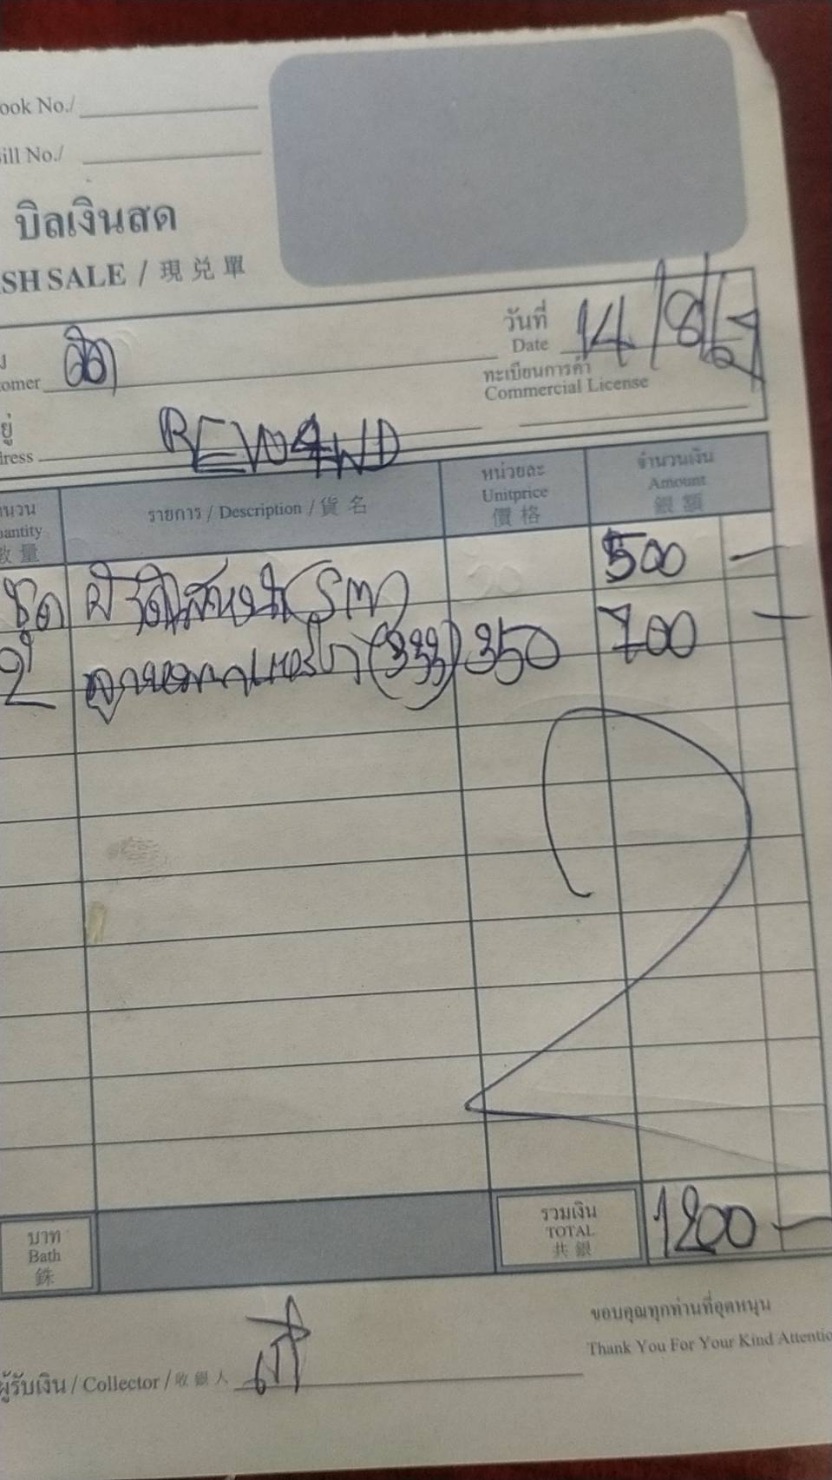 ook No./
ill No./
บิลเงินสด
SH SALE / 現兌單
วันที่ 14/8/67
Date
omer
ทะเบียนการค้า
Commercial License
ยู่
dress REVO 4WD
นวน รายการ / Description / 貨名 หน่วยละ จำนวนเงิน
uantity Unitprice Amount
數量 價格 銀額
ชุด 500 —
2 (333) 350 700 —
บาท รวมเงิน 1200 —
Bath TOTAL
銖 共銀
ขอบคุณทุกท่านที่อุดหนุน
Thank You For Your Kind Attentio
ผู้รับเงิน / Collector / 收銀人